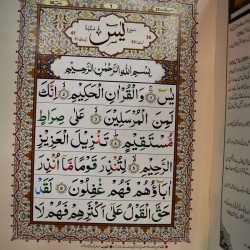 سورة يس مكية
بسم الله الرحمن الرحيم
يس ۝ والقران الحكيم ۝ انك
لمن المرسلين ۝ على صراط
مستقيم ۝ تنزيل العزيز
الرحيم ۝ لتنذر قوما ما انذر
اباؤهم فهم غفلون ۝ لقد
حق القول على اكثرهم فهم لا